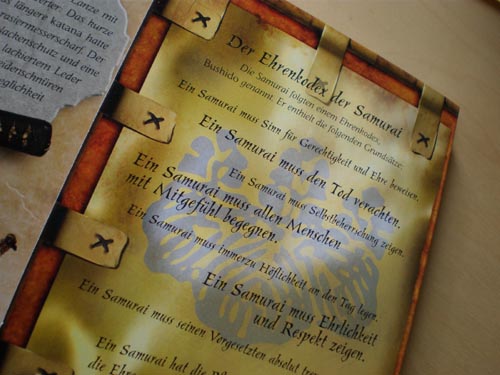 Ganze mit
längere katana hatte
Das kurze
rasiermesserscharf. Der
Nackenschutz und eine
lackiertem Leder
Der Ehrenkodex der Samurai
Die Samurai folgten einem Ehrenkodex,
Bushido genannt. Er enthielt die folgenden Grundsätze:
Ein Samurai muss Sinn für Gerechtigkeit und Ehre beweisen.
Ein Samurai muss den Tod verachten.
Ein Samurai muss Selbstbeherrschung zeigen.
Ein Samurai muss allen Menschen
mit Mitgefühl begegnen.
Ein Samurai muss immerzu Höflichkeit an den Tag legen.
Ein Samurai muss Ehrlichkeit
und Respekt zeigen.
Ein Samurai muss seinen Vorgesetzten absolut
Ein Samurai hat die
die